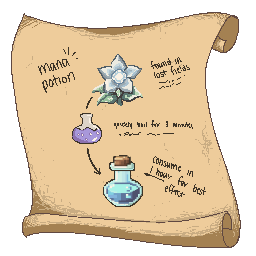 mana
potion
found in
lost fields
quickly boil for 3 minutes,
consume in
1 hour for best
effect